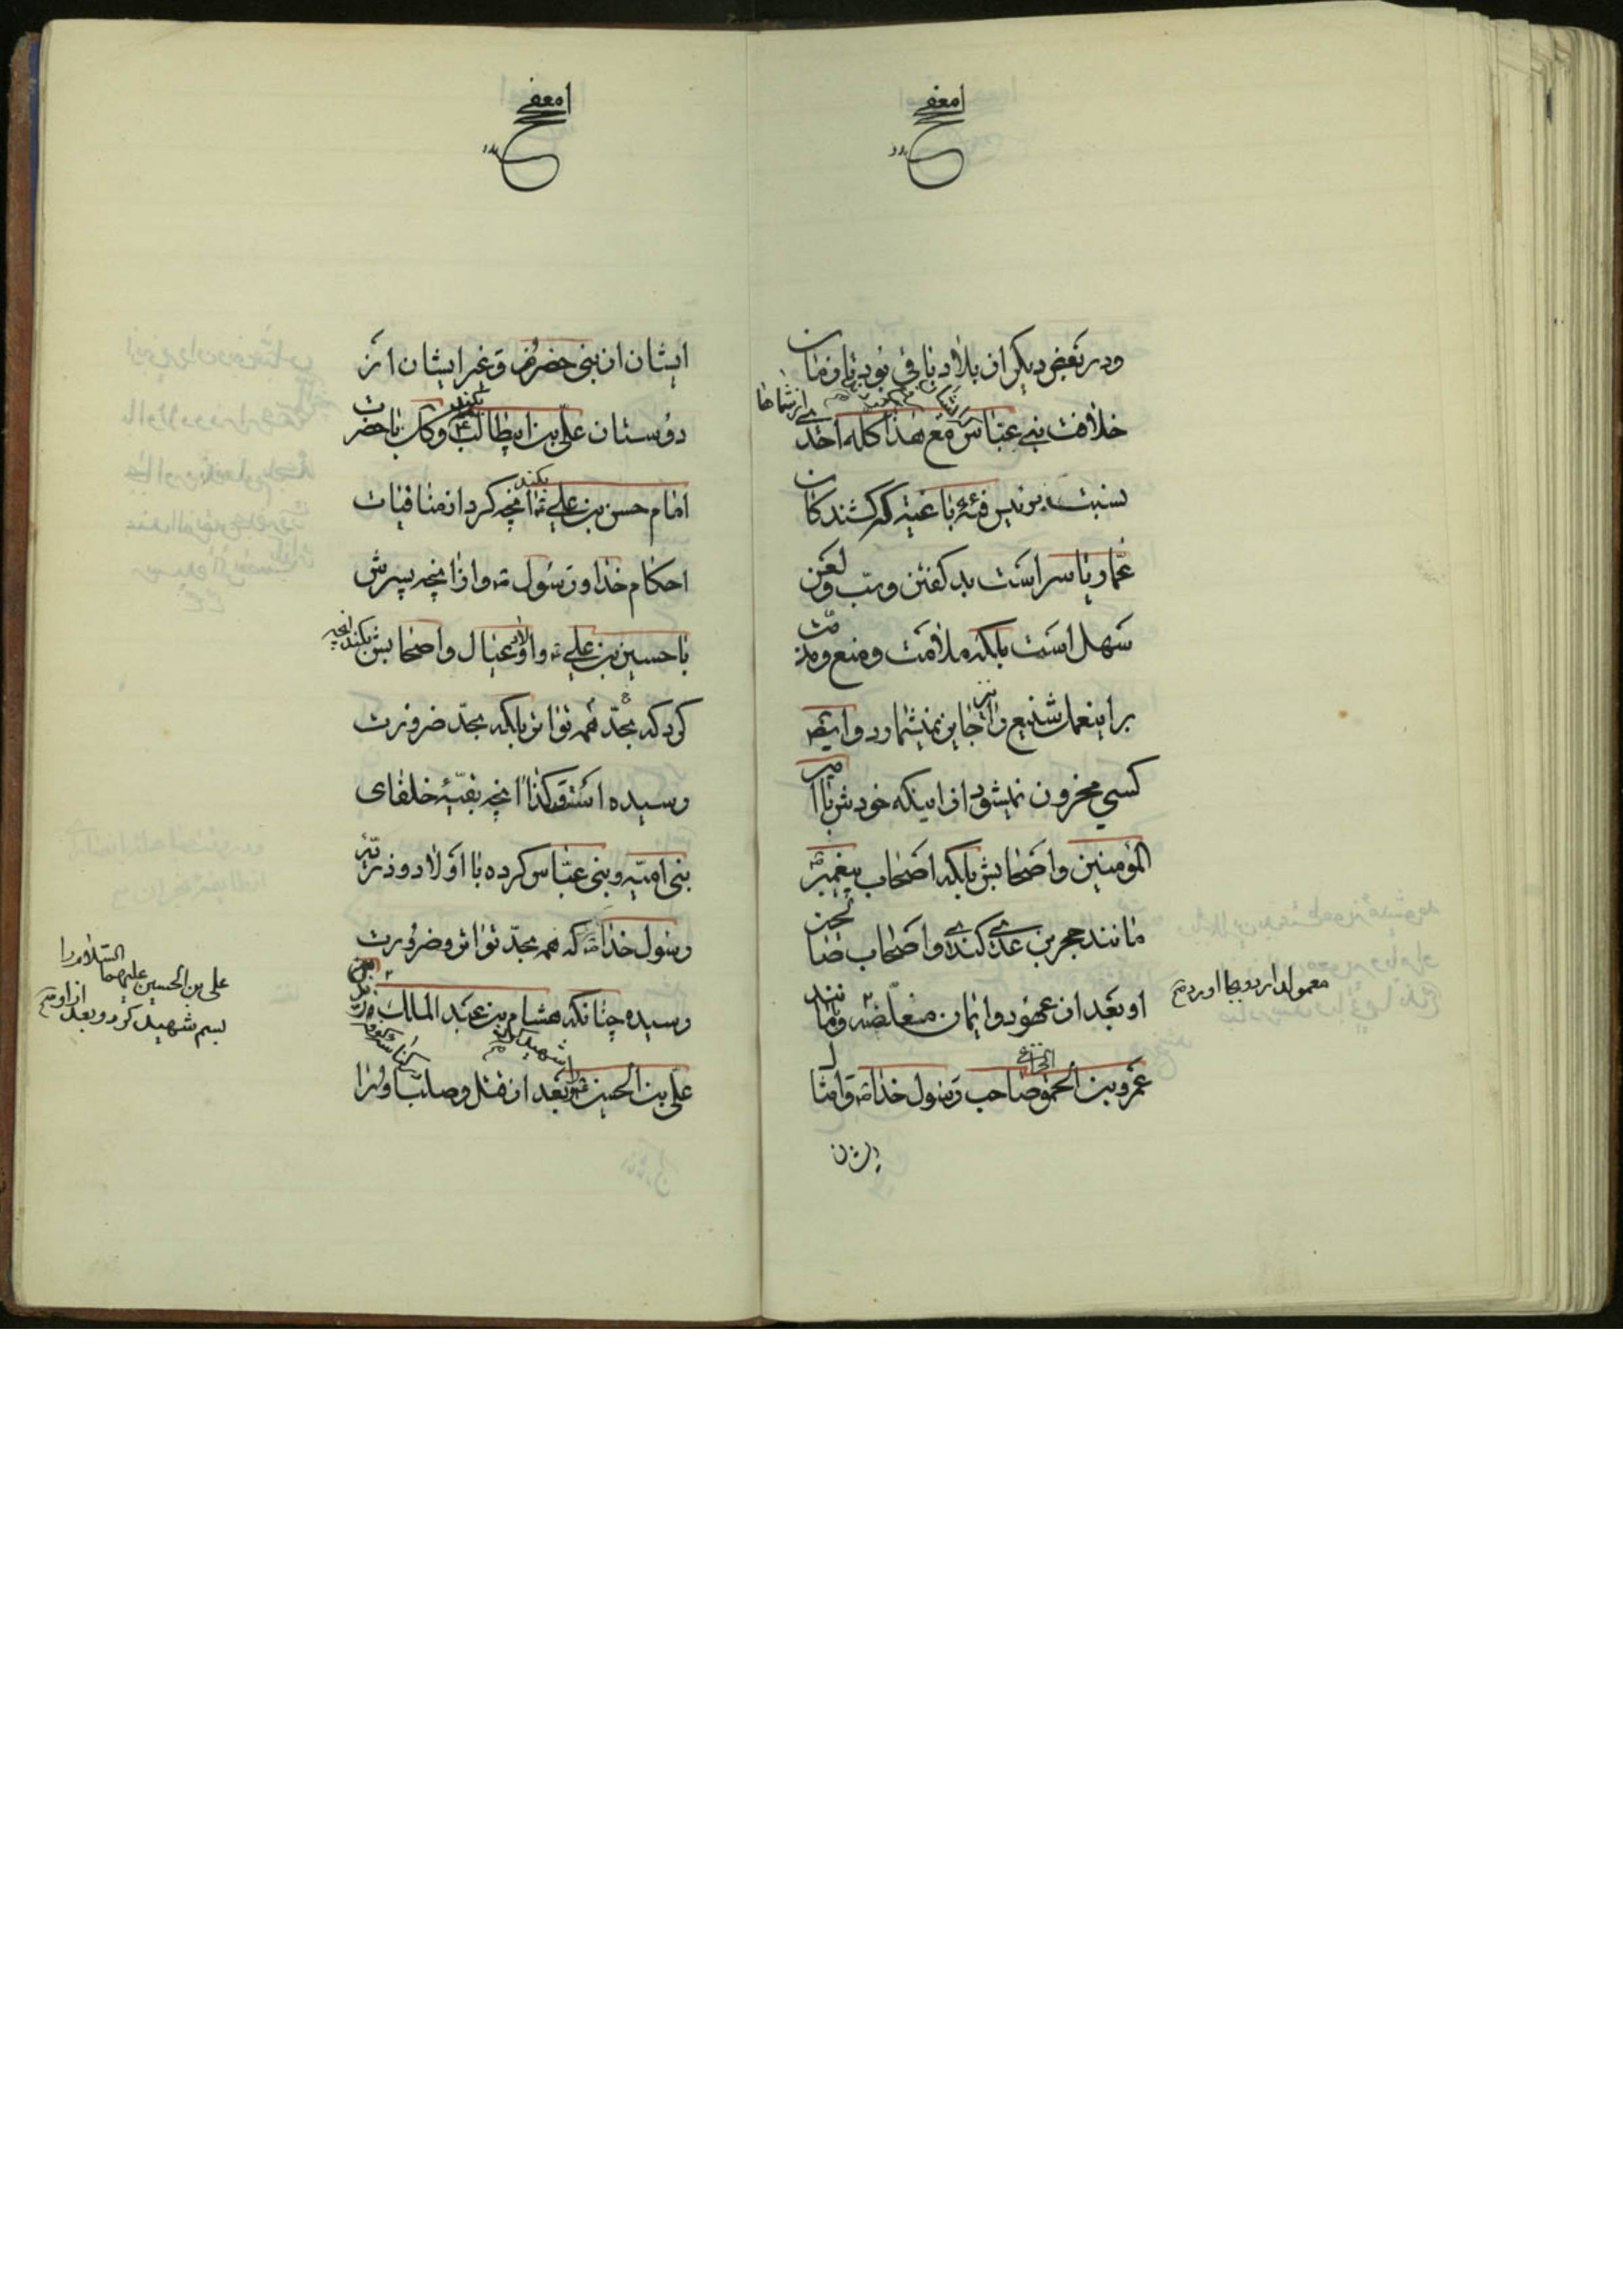 ودر بعض دیکر از بلاد باقی بود تا زمان
خلافت بنی عباس مع هذا کله احدی از شماها
نسبت برئیس فئه باغیه که کشندکان
عمار یاسر است بد کفتن و سب و لعن
سهل است بلکه ملامت و منع و مذمت
بر اینعمل شنیع را جایز نمیشمارد و ایضا
کسی محزون نمیشود از اینکه خودش با امیر
المؤمنین و اصحابش بلکه اصحاب پیغمبر
مانند حجر بن عدی کندی و اصحاب
او بعد از عهود و ایمان مغلظه و مانند
عمرو بن الحمق الخزاعی صاحب رسول خدا و امثال
ایشان
معمول دارد و بجا اورد
ایشان از بنی حضرم و غیر ایشان از
دوستان علی بن ابیطالب بکند و کذا با حضرت
امام حسن بن علی بکند انچه کرد از منافیات
احکام خدا و رسول و از انچه پسرش
با حسین بن علی و اولاد و عیال و اصحابش بکند انچه
کرد که بحد همه تواتر بلکه بحد ضرورت
رسیده است و کذا انچه بقیه خلفای
بنی امیه و بنی عباس کرده با اولاد و ذریه
رسول خدا که همه بحد تواتر و ضرورت
رسیده چنانکه هشام بن عبد الملک
علی بن الحسین را شهید کرد بعد از قتل و صلب او را
علی بن الحسین علیهما السلام را
بسم شهید کرد و بعد از او